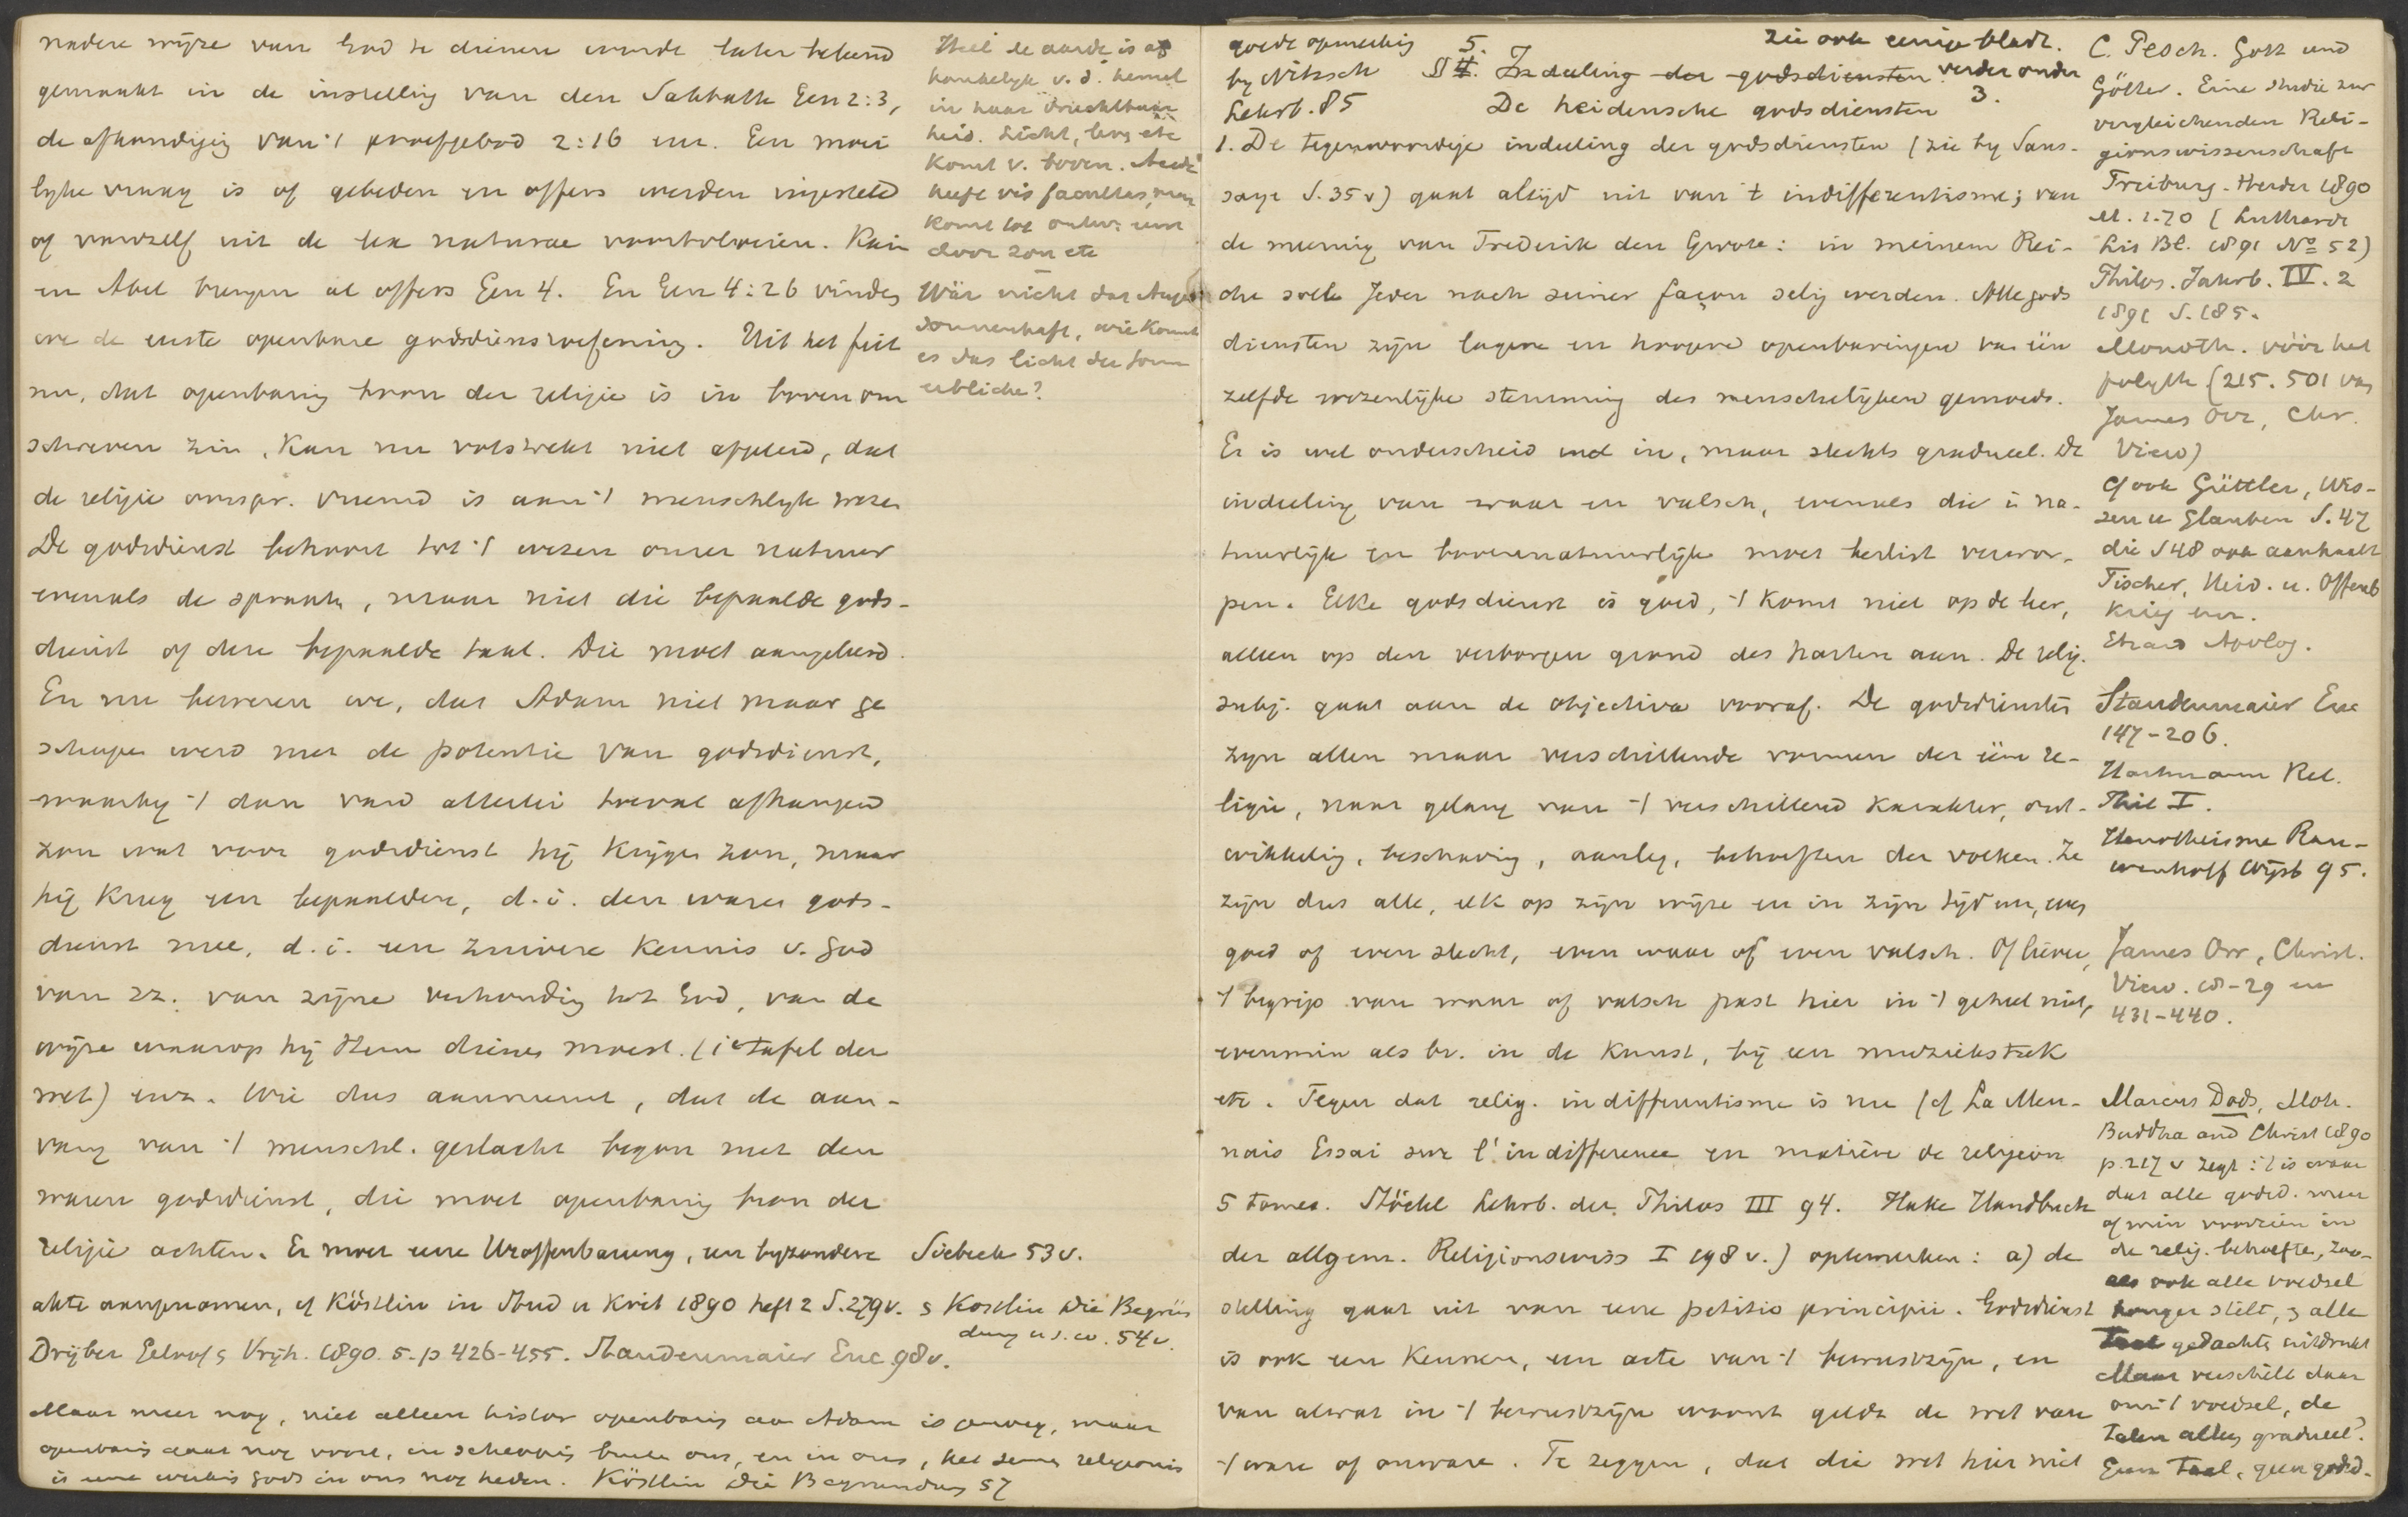 nadere wijze van God te dienen wordt later bekend
gemaakt in de instelling van den Sabbath Gen 2:3,
de afkondiging van 't proefgebod 2:16 enz. Een moei
lyke vraag is of gebeden en offers werden ingesteld
of vanzelf uit de lex naturae voortvloeien. Kain
en Abel brengen al offers Gen 4. En Gen 4:26 vinden
we de eerste openbare godsdienstoefening. Uit het feit
nu, dat openbaring bron der religie is in boven om
schreven zin, kan nu volstrekt niet afgeleid, dat
de religie oorspr. vreemd is aan 't menschlyk wezen
De godsdienst behoort tot 't wezen onzer natuur
evenals de spraak, maar niet die bepaalde gods-
dienst of deze bepaalde taal. Die moet aangeleerd.
En nu beweren we, dat Adam niet maar ge
schapen werd met de potentie van godsdienst,
waarby 't dan van allerlei toeval afhangen
zou wat voor godsdienst hij krijgen zou, maar
hij kreeg een bepaalden, d.i. den waren gods-
dienst mee, d.i. een zuivere kennis v. God
van zz. van zijne verhouding tot God, van de
wijze waarop hij Hem dienen moest. (1e tafel der
wet) enz. Wie dus aanneemt, dat de aan-
vang van 't menschl. geslacht begon met den
waren godsdienst, die moet openbaring bron der
religie achten. Er moet eene Uroffenbarung, een byzondere
akte aangenomen, cf Köstlin in Stud u Krit 1890 heft 2 S.279v.
Drijber Geloof & Vrijh. 1890. 5. p 426-455. Staudenmaier Enc 98v.
Maar meer nog, niet alleen histor openbaring aan Adam is genoeg, maar
openbaring gaat nog voort, in schepping buiten ons, en in ons, het semen religionis
is eene werking Gods in ons nog heden. Köstlin Die Begrundung 57
Heel de aarde is af
hankelyk v. d. hemel
in haar vruchtbaar
heid. Licht, leven etc
komt v. boven. Aarde
heeft vis facultas, maar
komt tot ontw: eerst
door zon etc
Wär nicht das Auge
sonnenhaft, wie konnt
es das licht der Sonn
erblicke?
Siebeck 53v.
& Kostlin Die Begrün
dung u.s.w. 54v.
goede opmerking
by Nitzsch
Lehrb. 85
zie ook eenige bladz.
verder onder
3.
5.
§ 4. Indeeling der godsdiensten
De heidensche godsdiensten
1. De tegenwoordige indeeling der godsdiensten (zie by Saus-
saye S.35v) gaat altijd uit van 't indifferentisme; van
de meening van Frederik den Groote: in meinem Rei-
che soll Jeder nach seiner façon selig werden. Alle gods
diensten zijn lagere en hoogere openbaringen van één
zelfde wezenlijke stemming des menschelijken gemoeds.
Er is wel onderscheid in, maar slechts gradueel. De
indeeling van waar en valsch, evenals die in na-
tuurlijk en bovennatuurlijk moet beslist verwor-
pen. Elke godsdienst is goed, 't komt niet op de leer,
alleen op den verborgen grond des harten aan. De relig.
subj. gaat aan de objectiva vooraf. De godsdiensten
zyn allen maar verschillende vormen der ééne re-
ligie, naar gelang van 't verschillend karakter, ont-
wikkeling, beschaving, aanleg, behoeften der volken. Ze
zijn dus alle, elk op zijn wijze en in zijn tijd enz, even
goed of even slecht, even waar of even valsch. Of liever,
't begrip van waar of valsch past hier in 't geheel niet,
evenmin als bv. in de kunst, bij een muziekstuk
etc. Tegen dat relig. indifferentisme is nu (cf La Men-
nais Essai sur l'indifference en matière de religion
5 tomes. Stöckl Lehrb. der Philos III 94. Hake Handbuch
der allgem. Religionswiss I 198 v.) optemerken: a) de
stelling gaat uit van eene petitio principii. Godsdienst
is ook een kennen, een acte van 't bewustzijn, en
van alwat in 't bewustzijn woont geldt de wet van
't ware of onware. Te zeggen, dat die wet hier niet
C. Pesch. Gott und
Götter. Eine Studie zur
vergleichenden Reli-
gionswissenschaft
Freiburg. Herder 1890
M. 1.70 (Luthardt
Lit Bl. 1891 No 52)
Philos. Jahrb. IV. 2
1891 S. 185.
Monoth. vóór het
polyth (215. 501 van
James Orr, Chr.
View)
Cf ook Güttler, Wis-
sen u Glauben S. 47
die S 48 ook aanhaalt
Fischer, Heid. u. Offenb
Krieg enz.
Ebrard Apolog.
Staudenmaier Enc
147-206.
Hartmann Rel.
Phil I.
Henotheisme Rau-
wenhoff Wijsb 95.
James Orr, Christ.
View. 18-29 en
431-440.
Marcus Dods, Moh.
Buddha and Christ 1890
p. 217 v zegt: 't is waar
dat alle godsd. meer
of min voorzien in
de relig. behoefte, zoo-
als ook alle voedsel
honger stilt, & alle
taal gedachte uitdrukt
Maar verschilt daar
om 't voedsel, de
talen alleen gradueel?
Geen taal, geen godsd-